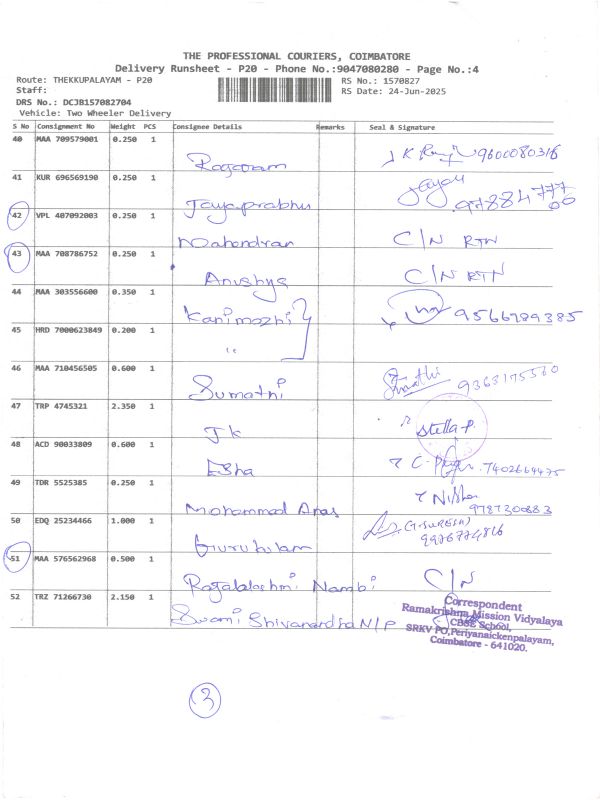 THE PROFESSIONAL COURIERS, COIMBATORE
Delivery Runsheet - P20 - Phone No.:9047080280 - Page No.:4
Route: THEKKUPALAYAM - P20 RS No.: 1570827
Staff: RS Date: 24-Jun-2025
DRS No.: DCJB157082704
Vehicle: Two Wheeler Delivery
S No Consignment No Weight PCS Consignee Details Remarks Seal & Signature
40 MAA 709579001 0.250 1
9600080316
41 KUR 696569190 0.250 1
Jayaprabhu
42 VPL 407092003 0.250 1
Mahendran C/N RTN
43 MAA 708786752 0.250 1
Anushya C/N RTN
44 MAA 303556600 0.350 1
Kanimozhi
45 HRD 7000623849 0.200 1
"
46 MAA 710456505 0.600 1
Sumathi 9363175560
47 TRP 4745321 2.350 1
JK Stella P.
48 ACD 90033809 0.600 1
Esha 7402664475
49 TDR 5525385 0.250 1
Mohammad Anas
50 EDQ 25234466 1.000 1
Gurukulam (T.SURESH)
51 MAA 576562968 0.500 1
Rajalakshmi Nambi C/N
52 TRZ 71266730 2.150 1
Swami Shivanandha N/P
Correspondent
Ramakrishna Mission Vidyalaya
CBSE School,
SRKV PO,Periyanaickenpalayam,
Coimbatore - 641020.
3